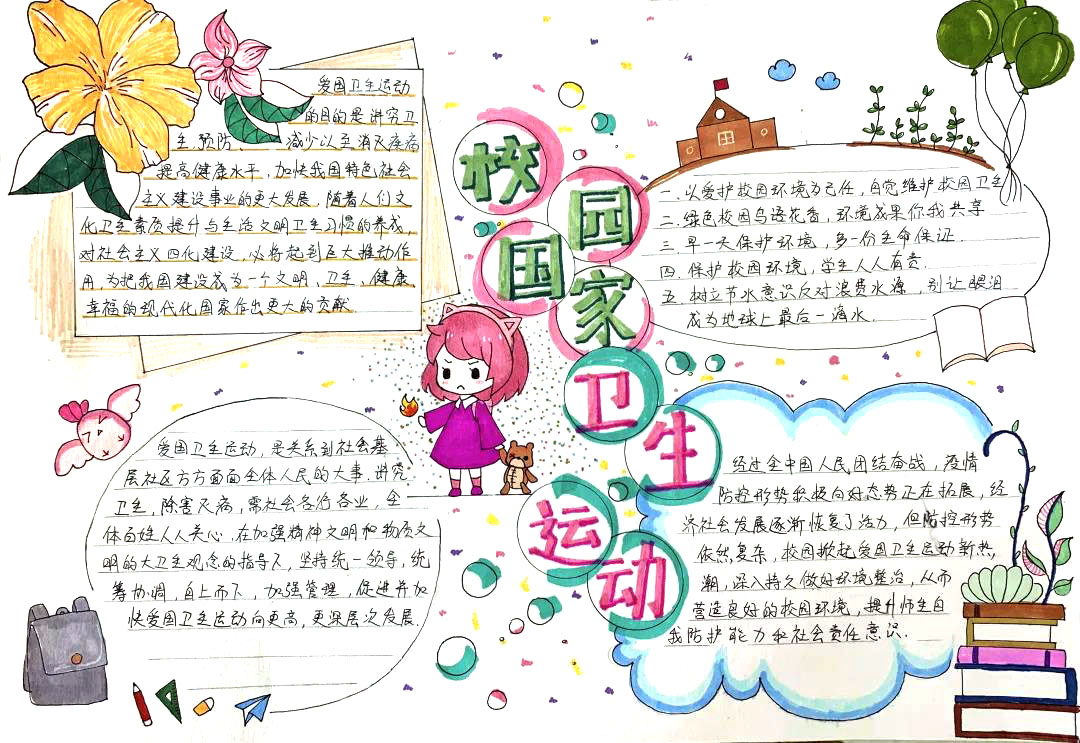 校园国家卫生运动
爱国卫生运动
的目的是讲究卫
生.预防、减少以至消灭疾病
提高健康水平，加快我国特色社会
主义建设事业的更大发展，随着人们文
化卫生素质提升与生活文明卫生习惯的养成，
对社会主义四化建设，必将起到巨大推动作
用，为把我国建设成为一个文明、卫生、健康
幸福的现代化国家作出更大的贡献.
一.以爱护校园环境为己任，自觉维护校园卫生
二.绿色校园鸟语花香，环境成果你我共享
三.早一天保护环境，多一份生命保证.
四.保护校园环境，学生人人有责.
五.树立节水意识反对浪费水源，别让眼泪
成为地球上最后一滴水.
爱国卫生运动，是关系到社会基
层社区方方面面全体人民的大事.讲究
卫生，除害灭病，需社会各行各业，全
体百姓人人关心.在加强精神文明和物质文
明的大卫生观念的指导下，坚持统一领导，统
筹协调，自上而下，加强管理，促进并加
快爱国卫生运动向更高，更深层次发展.
经过全中国人民团结奋战，疫情
防控形势积极向好态势正在拓展，经
济社会发展逐渐恢复了活力，但防控形势
依然复杂，校园掀起爱国卫生运动新热
潮，深入持久做好环境整治，从而
营造良好的校园环境，提升师生自
我防护能力和社会责任意识.